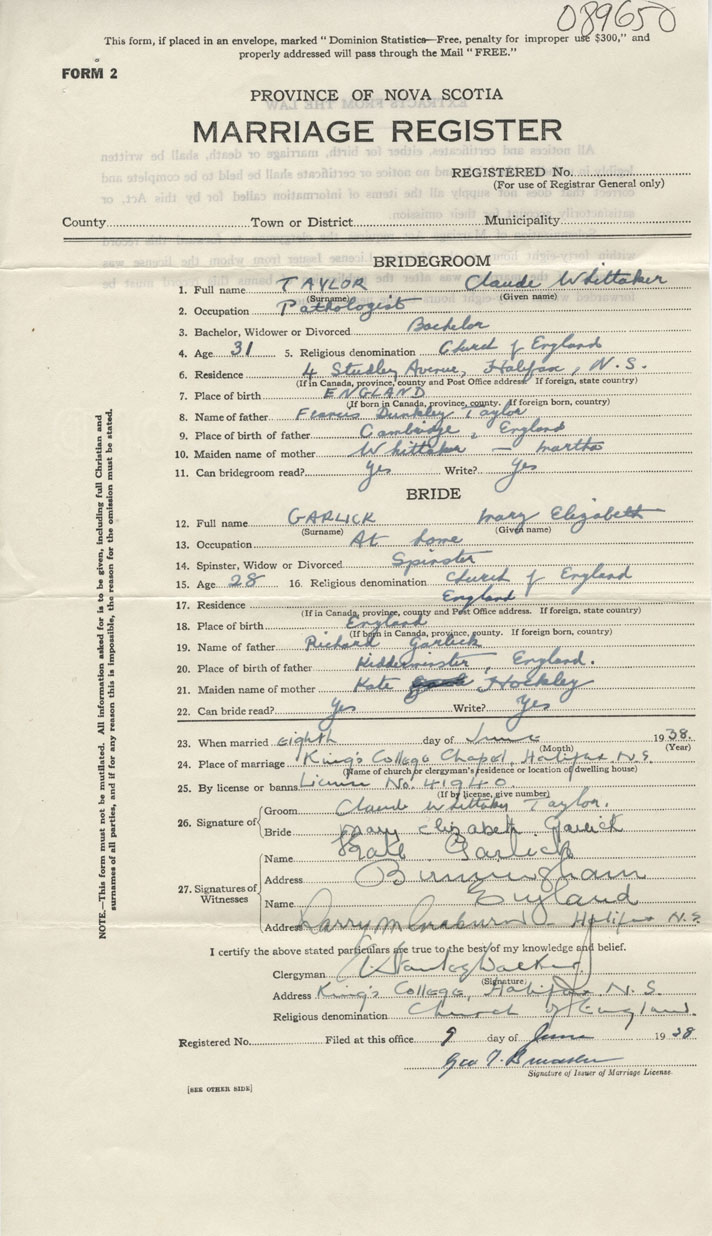 089650
This form, if placed in an envelope, marked "Dominion Statistics—Free, penalty for improper use $300," and
properly addressed will pass through the Mail "FREE."
FORM 2
PROVINCE OF NOVA SCOTIA
MARRIAGE REGISTER
REGISTERED No.
(For use of Registrar General only)
County Town or District Municipality
BRIDEGROOM
1. Full name TAYLOR Claude Whittaker
(Surname) (Given name)
2. Occupation Pathologist
3. Bachelor, Widower or Divorced Bachelor
4. Age 31 5. Religious denomination Church of England
6. Residence 4 Studley Avenue, Halifax, N.S.
(If in Canada, province, county and Post Office address. If foreign, state country)
7. Place of birth ENGLAND
(If born in Canada, province, county. If foreign born, country)
8. Name of father Francis Dunkley Taylor
9. Place of birth of father Cambridge, England
10. Maiden name of mother Whittaker — Martha
11. Can bridegroom read? Yes Write? Yes
BRIDE
12. Full name GARLICK Mary Elizabeth
(Surname) (Given name)
13. Occupation At home
14. Spinster, Widow or Divorced Spinster
15. Age 28 16. Religious denomination Church of England
17. Residence England
(If in Canada, province, county and Post Office address. If foreign, state country)
18. Place of birth England
(If born in Canada, province, county. If foreign born, country)
19. Name of father Richard Garlick
20. Place of birth of father Kidderminster, England.
21. Maiden name of mother Kate Hockley
22. Can bride read? Yes Write? Yes
23. When married eighth day of June 1938.
(Month) (Year)
24. Place of marriage King's College Chapel, Halifax N.S.
(Name of church or clergyman's residence or location of dwelling house)
25. By license or banns License No. 41940.
(If by license, give number)
26. Signature of Groom Claude Whittaker Taylor.
Bride Mary Elizabeth Garlick
27. Signatures of Witnesses
Name Kate Garlick
Address Birmingham
Name England
Address Halifax N.S.
I certify the above stated particulars are true to the best of my knowledge and belief.
Clergyman Stanley Walker
(Signature)
Address King's College, Halifax N.S.
Religious denomination Church of England.
Registered No. Filed at this office 9 day of June 1938
Geo
Signature of Issuer of Marriage License
[SEE OTHER SIDE]
NOTE.—This form must not be mutilated. All information asked for is to be given, including full Christian and
surnames of all parties, and if for any reason this is impossible, the reason for the omission must be stated.